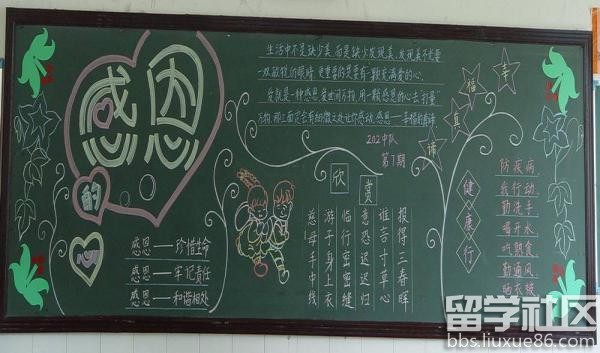 感恩
的
心
感恩——珍惜生命
感恩——牢记责任
感恩——和谐相处
生活中不是缺少美,而是缺少发现美,发现美不光要
一双敏锐的眼睛,更重要的是要有一颗充满爱的心.
爱就是一种感恩,爱世间万物,用一颗感恩的心去"打量"
万物,那里面定会有细微之处让你感动.感恩——幸福的真谛
202中队
第1期
幸
福
真
谛
欣赏
慈母手中线
游子身上衣
临行密密缝
意恐迟迟归
谁言寸草心
报得三春晖
健
康
行
防疾病
我行动
勤洗手
喝开水
吃熟食
勤通风
晒衣被
留学社区
bbs.liuxue86.com